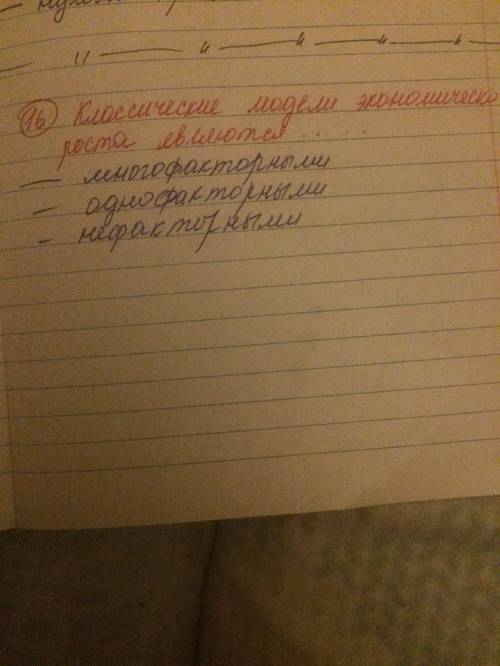 — и — " — " — " — "
16 Классические модели экономическо
роста являются .....
— многофакторными
— однофакторными
— нефакторными